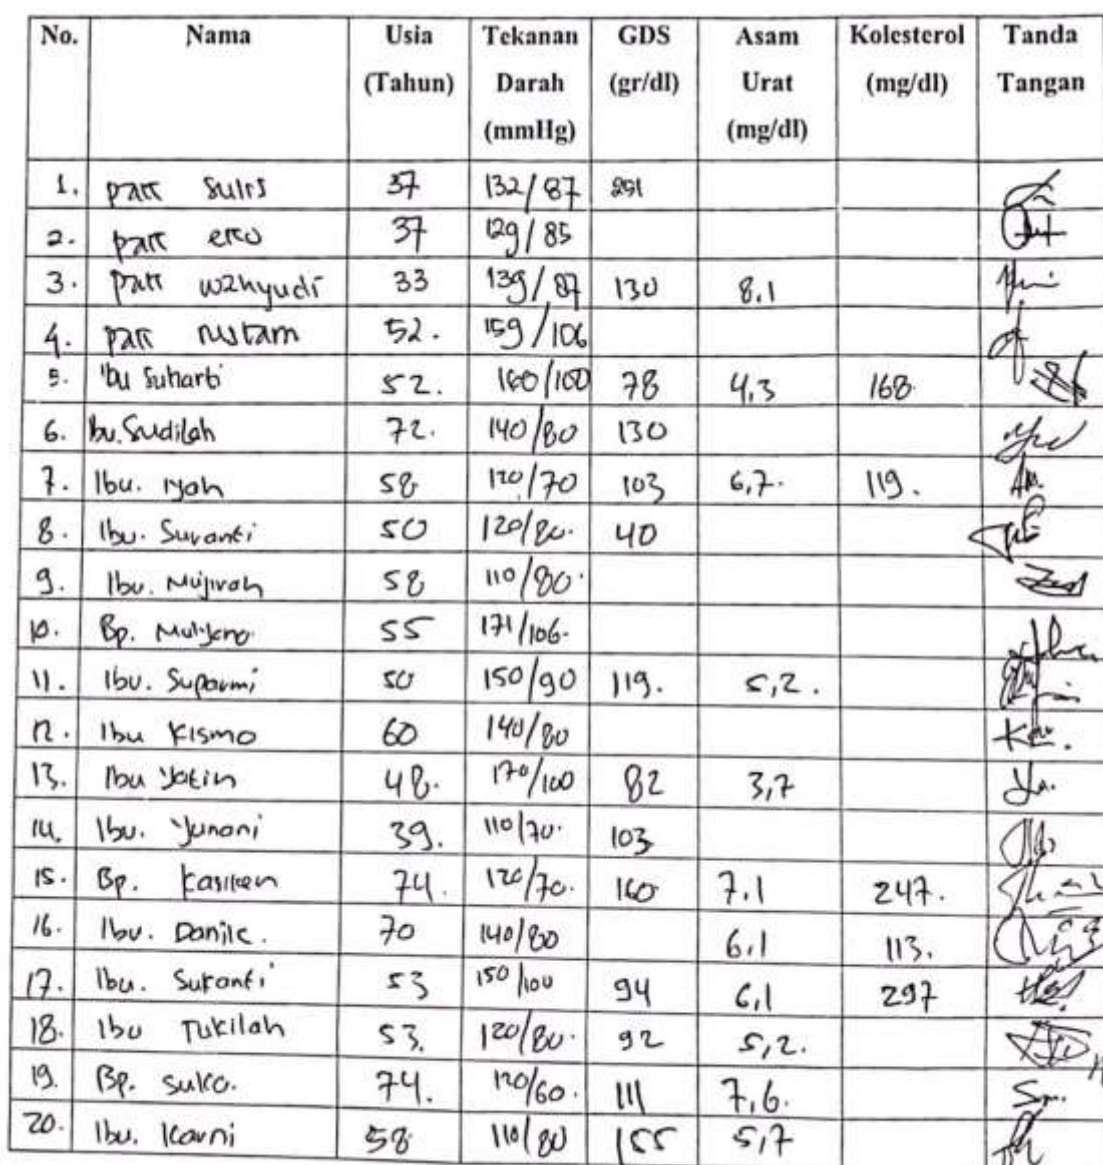 No. Nama Usia (Tahun) Tekanan Darah (mmHg) GDS (gr/dl) Asam Urat (mg/dl) Kolesterol (mg/dl) Tanda Tangan
1. pak sulis 37 132/87 251
2. pak eko 37 129/85
3. pak wahyudi 33 139/87 130 8,1
4. pak rustam 52. 159/106
5. Ibu Suharti 52. 160/100 78 4,3 168
6. Ibu. Sudilah 72. 140/80 130
7. Ibu. Iyah 58 120/70 103 6,7. 119.
8. Ibu. Suranti 50 120/80. 40
9. Ibu. Mujirah 58 110/80.
10. Bp. Mulyono. 55 171/106.
11. Ibu. Suparmi 50 150/90 119. 5,2.
12. Ibu Kismo 60 140/80
13. Ibu Yatin 48. 170/100 82 3,7
14. Ibu. Yunani 39. 110/70. 103
15. Bp. 74. 120/70. 160 7.1 247.
16. Ibu. 70 140/80 6.1 113.
17. Ibu. Sukanti 53 150/100 94 6,1 297
18. Ibu Tukilah 53, 120/80. 92 5,2.
19. Bp. suko. 74. 120/60. 111 7,6.
20. Ibu. Karni 58 110/80 155 5,7